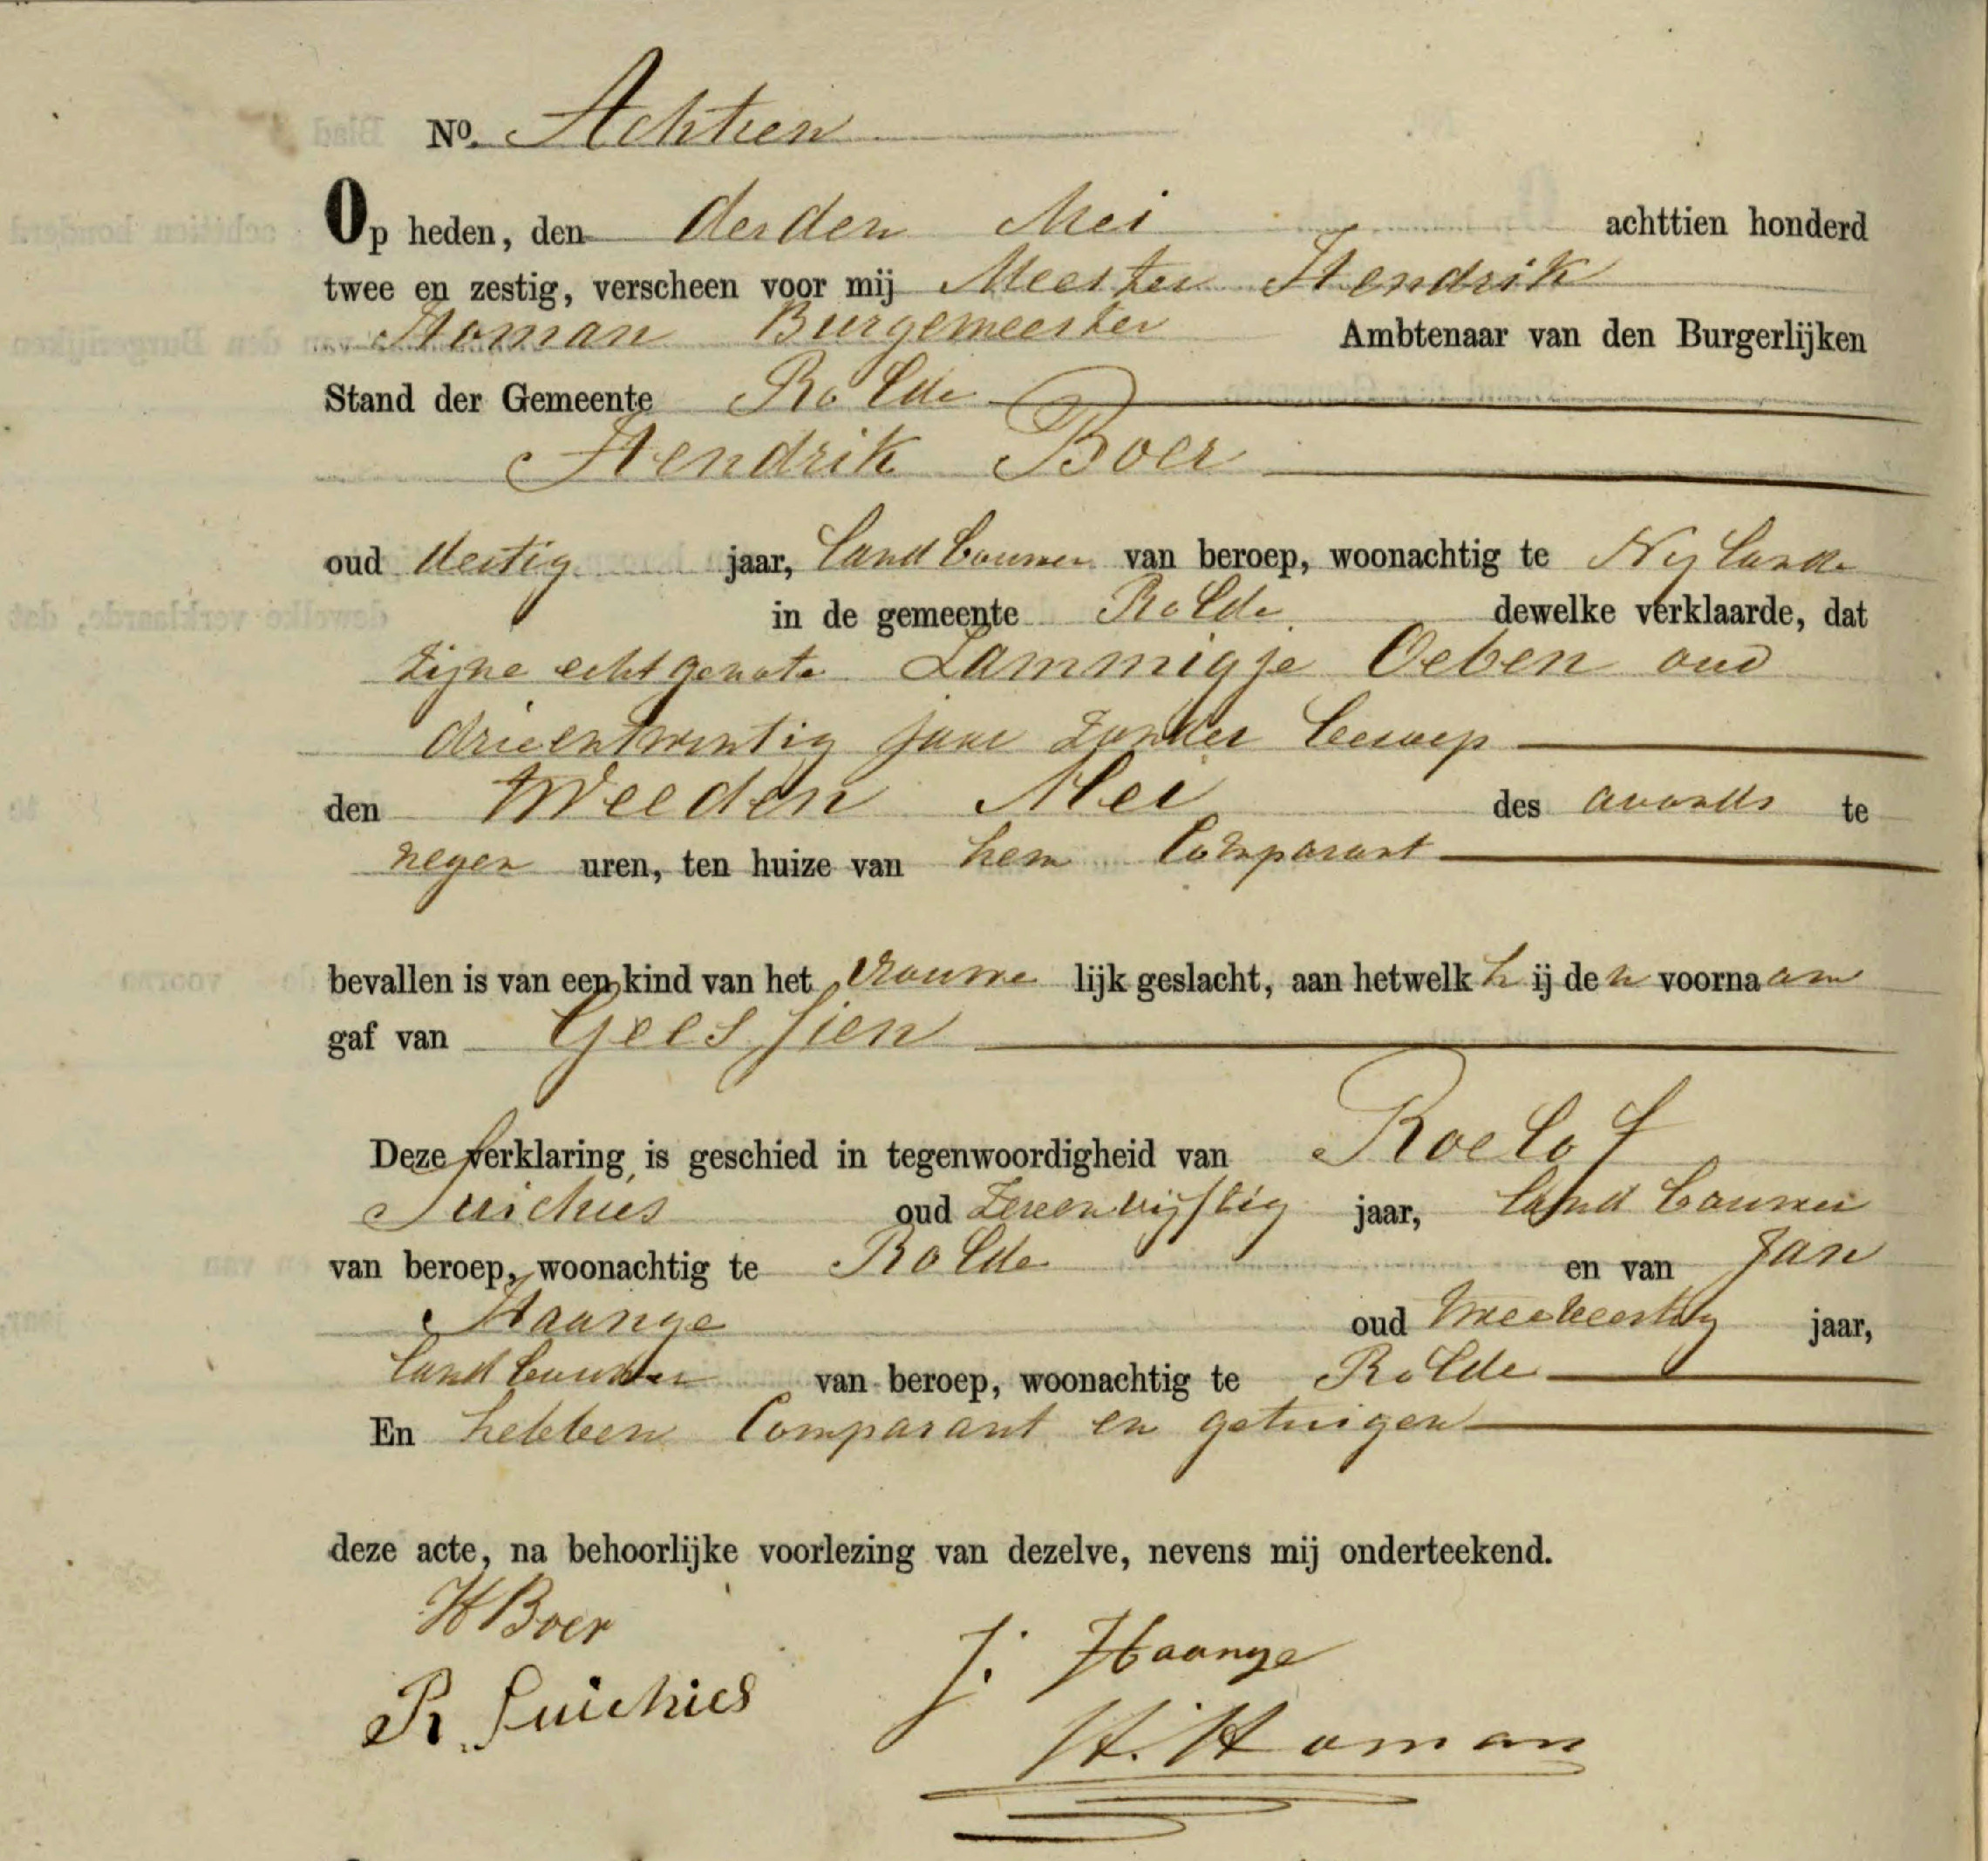 No. Achtien
Op heden, den derden Mei achttien honderd
twee en zestig, verscheen voor mij Meester Hendrik
Homan Burgemeester Ambtenaar van den Burgerlijken
Stand der Gemeente Rolde
Hendrik Boer
oud dertig jaar, landbouwer van beroep, woonachtig te Nijlande
in de gemeente Rolde dewelke verklaarde, dat
zijne echtgenote Lammigje Oeben oud
drieentwintig jaar zonder beroep
den tweeden Mei des avonds te
negen uren, ten huize van hem Comparant
bevallen is van een kind van het vrouwelijk geslacht, aan hetwelk hij den voornaam
gaf van Geessien
Deze verklaring is geschied in tegenwoordigheid van Roelof
Suichies oud zevenvijftig jaar, landbouwer
van beroep, woonachtig te Rolde en van Jan
Haange oud tweeveertig jaar,
landbouwer van beroep, woonachtig te Rolde
En hebben Comparant en getuigen
deze acte, na behoorlijke voorlezing van dezelve, nevens mij onderteekend.
H Boer
J. Haange
R. Suichies
H. Homan